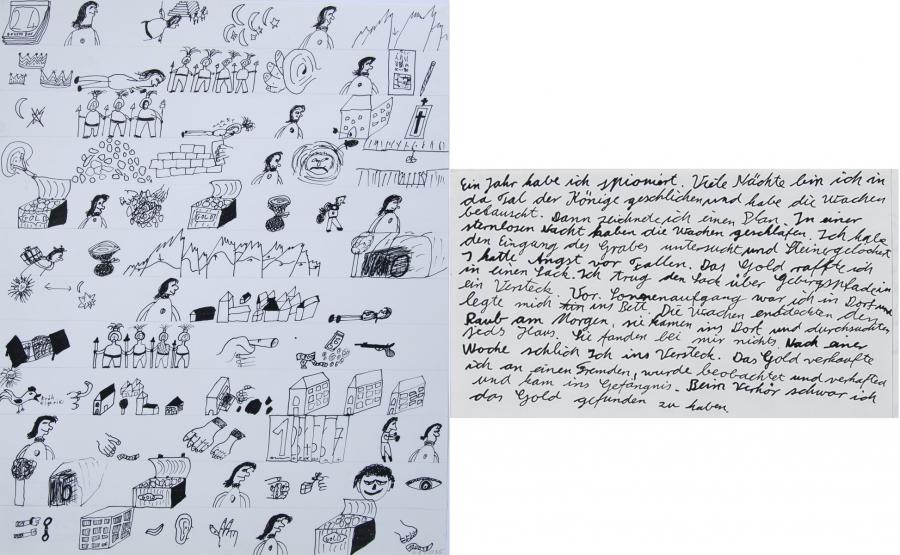 GOLD
GOLD
GOLD
GOLD
Ein Jahr habe ich spioniert. Viele Nächte bin ich in
da Tal der Könige geschlichen und habe die Wachen
belauscht. Dann zeichnete ich einen Plan. In einer
sternlosen Nacht haben die Wachen geschlafen. Ich habe
den Eingang des Grabes untersucht und Steine gelockert
I hatte Angst vor Fallen. Das Gold raffte ich
in einen Sack. Ich trug den Sack über Gebirgspfade in
ein Versteck. Vor Sonnenaufgang war ich in Dorf und
legte mich ins Bett. Die Wachen entdeckten den
Raub am Morgen, sie kamen ins Dorf und durchsuchten
jeds Haus. Sie fanden bei mir nichts. Nach einer
Woche schlich Ich ins Versteck. Das Gold verkaufte
ich an einen Fremden, wurde beobachtet und verhafted
und kam ins Gefängnis. Beim Verhör schwor ich
das Gold gefunden zu haben.